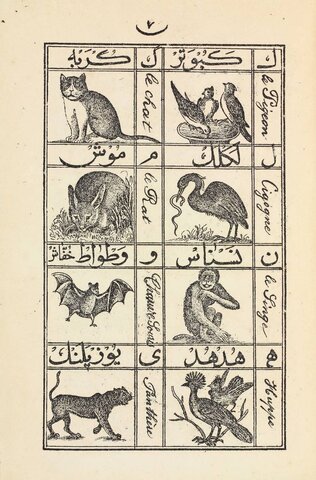 ٧
ك كبوتر
le Pigeon
گ گربه
le chat
ل لكلك
Cigogne
م موش
le Rat
ن نسناس
le Singe
و وطواط خفاش
Chauve Souris
ه هدهد
Huppe
ى يوزپلنك
Panthère